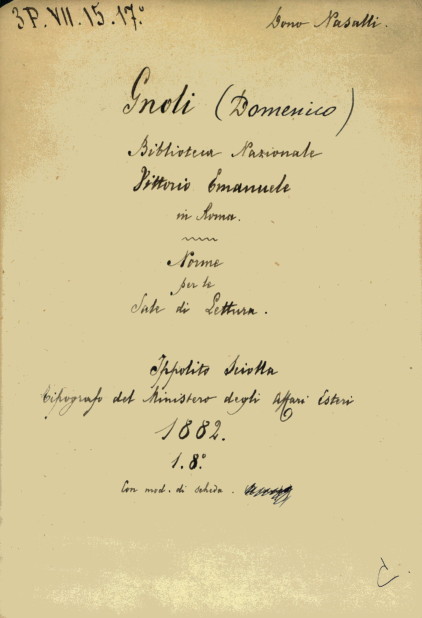 3P. VII. 15. 17.°
Dono Nasalli.
Gnoli (Domenico)
Biblioteca Nazionale
Vittorio Emanuele
in Roma.
Norme
per le
Sale di Lettura.
Ippolito Sciolla
Tipografo del Ministero degli Affari Esteri
1882.
1. 8.°
Con mod. di scheda.